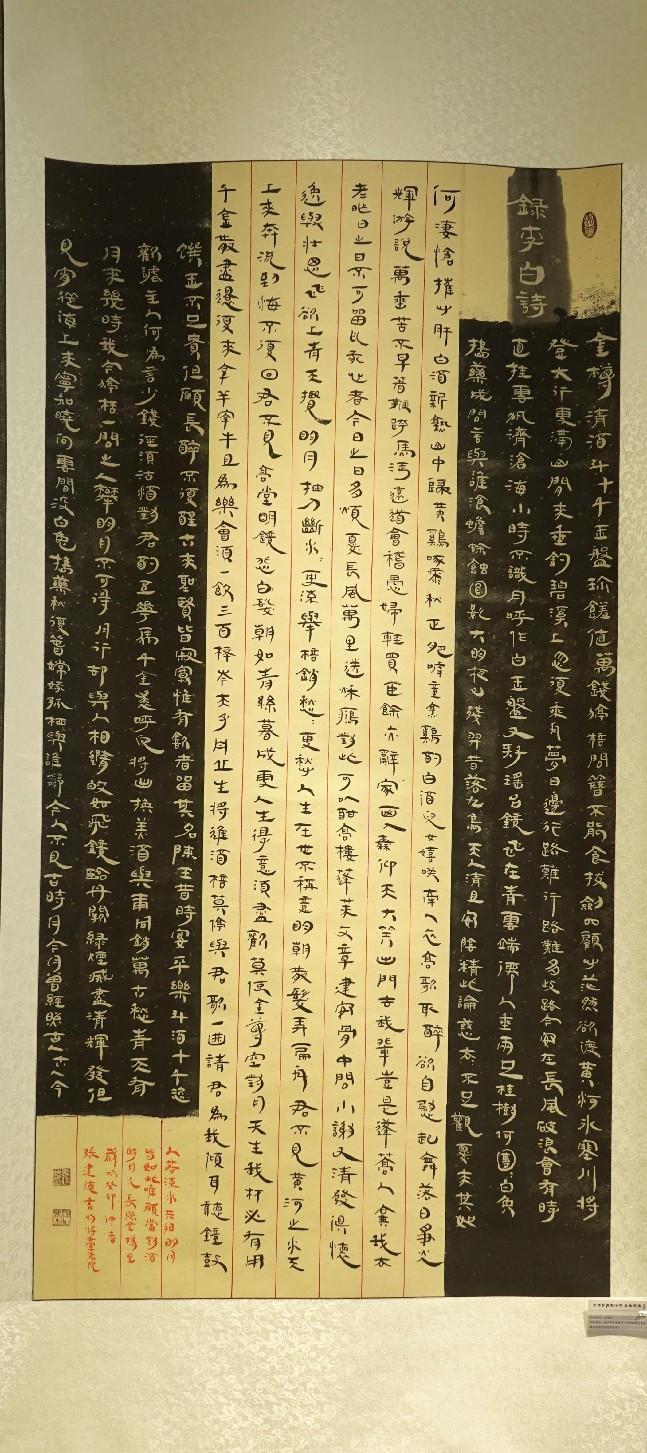 錄李白詩
金樽清酒斗十千玉盤珍饈值萬錢停杯投箸不能食拔劍四顧心茫然欲渡黃河冰塞川將
登太行雪滿山閒來垂釣碧溪上忽復乘舟夢日邊行路難行路難多歧路今安在長風破浪會有時
直挂雲帆濟滄海小時不識月呼作白玉盤又疑瑤台鏡飛在青雲端仙人垂兩足桂樹何團白兔
搗藥成問言與誰飡蟾蜍蝕圓影大明夜已殘羿昔落九烏天人清且安陰精此淪惑去不足觀憂來其如
何淒愴摧心肝白酒新熟山中歸黃鷄啄黍秋正肥呼童烹鷄酌白酒兒女嬉笑牽人衣高歌取醉欲自慰起舞落日爭光
輝游說萬乘苦不早著鞭跨馬涉遠道會稽愚婦輕買臣餘亦辭家西入秦仰天大笑出門去我輩豈是蓬蒿人棄我去
者昨日之日不可留亂我心者今日之日多煩憂長風萬里送秋鴈對此可以酣高樓蓬萊文章建安骨中間小謝又清發俱懷
逸興壯思飛欲上青天攬明月抽刀斷水水更流舉杯銷愁愁更愁人生在世不稱意明朝散髮弄扁舟君不見黃河之水天
上來奔流到海不復回君不見高堂明鏡悲白髮朝如青絲暮成雪人生得意須盡歡莫使金尊空對月天生我材必有用
千金散盡還復來烹羊宰牛且為樂會須一飲三百杯岑夫子丹丘生將進酒杯莫停與君歌一曲請君為我傾耳聽鐘鼓
饌玉不足貴但願長醉不復醒古來聖賢皆寂寞惟有飲者留其名陳王昔時宴平樂斗酒十千恣
歡謔主人何為言少錢徑須沽酒對君酌五花馬千金裘呼兒將出換美酒與爾同銷萬古愁青天有
月來幾時我今停杯一問之人攀明月不可得月行卻與人相隨皎如飛鏡臨丹闕綠煙滅盡清輝發但
見宵從海上來寧知曉向雲間沒白兔搗藥秋復春嫦娥孤栖與誰鄰今人不見古時月今月曾經照古人古人今
人若流水共看明月
皆如此唯願當歌對酒
時月光長照金樽里
歲次癸卯仲春
張建德書